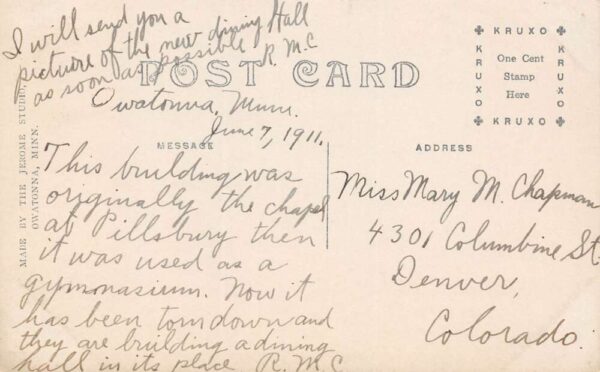 I will send you a
picture of the new dining Hall
as soon as possible R. M. C
POST CARD
Owatonna, Minn.
June 7, 1911.
MESSAGE
This building was
originally the chapel
at Pillsbury then
it was used as a
gymonasium. Now it
has been torn down and
they are building a dining
hall in its place R. M. C
MADE BY THE JEROME STUDIO,
OWATONNA, MINN.
KRUXO
KRUXO
One Cent
Stamp
Here
KRUXO
KRUXO
ADDRESS
Miss Mary M. Chapman
4301 Columbine St.
Denver,
Colorado.